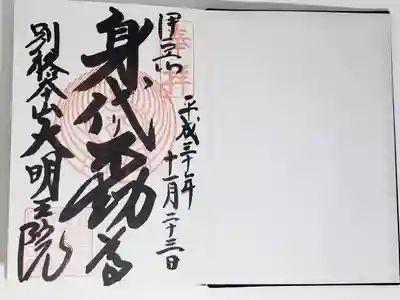 奉拝
伊豆
平成三十年
十一月二十三日
身代不動尊
別格本山大明王院